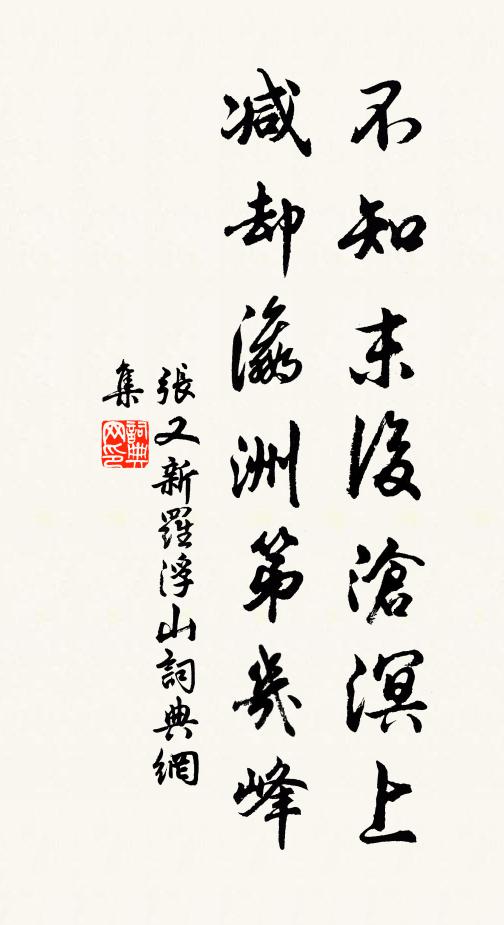 不知末後滄溟上
減却瀛洲第幾峰
張又新羅浮山詞典網
集
詞典網印